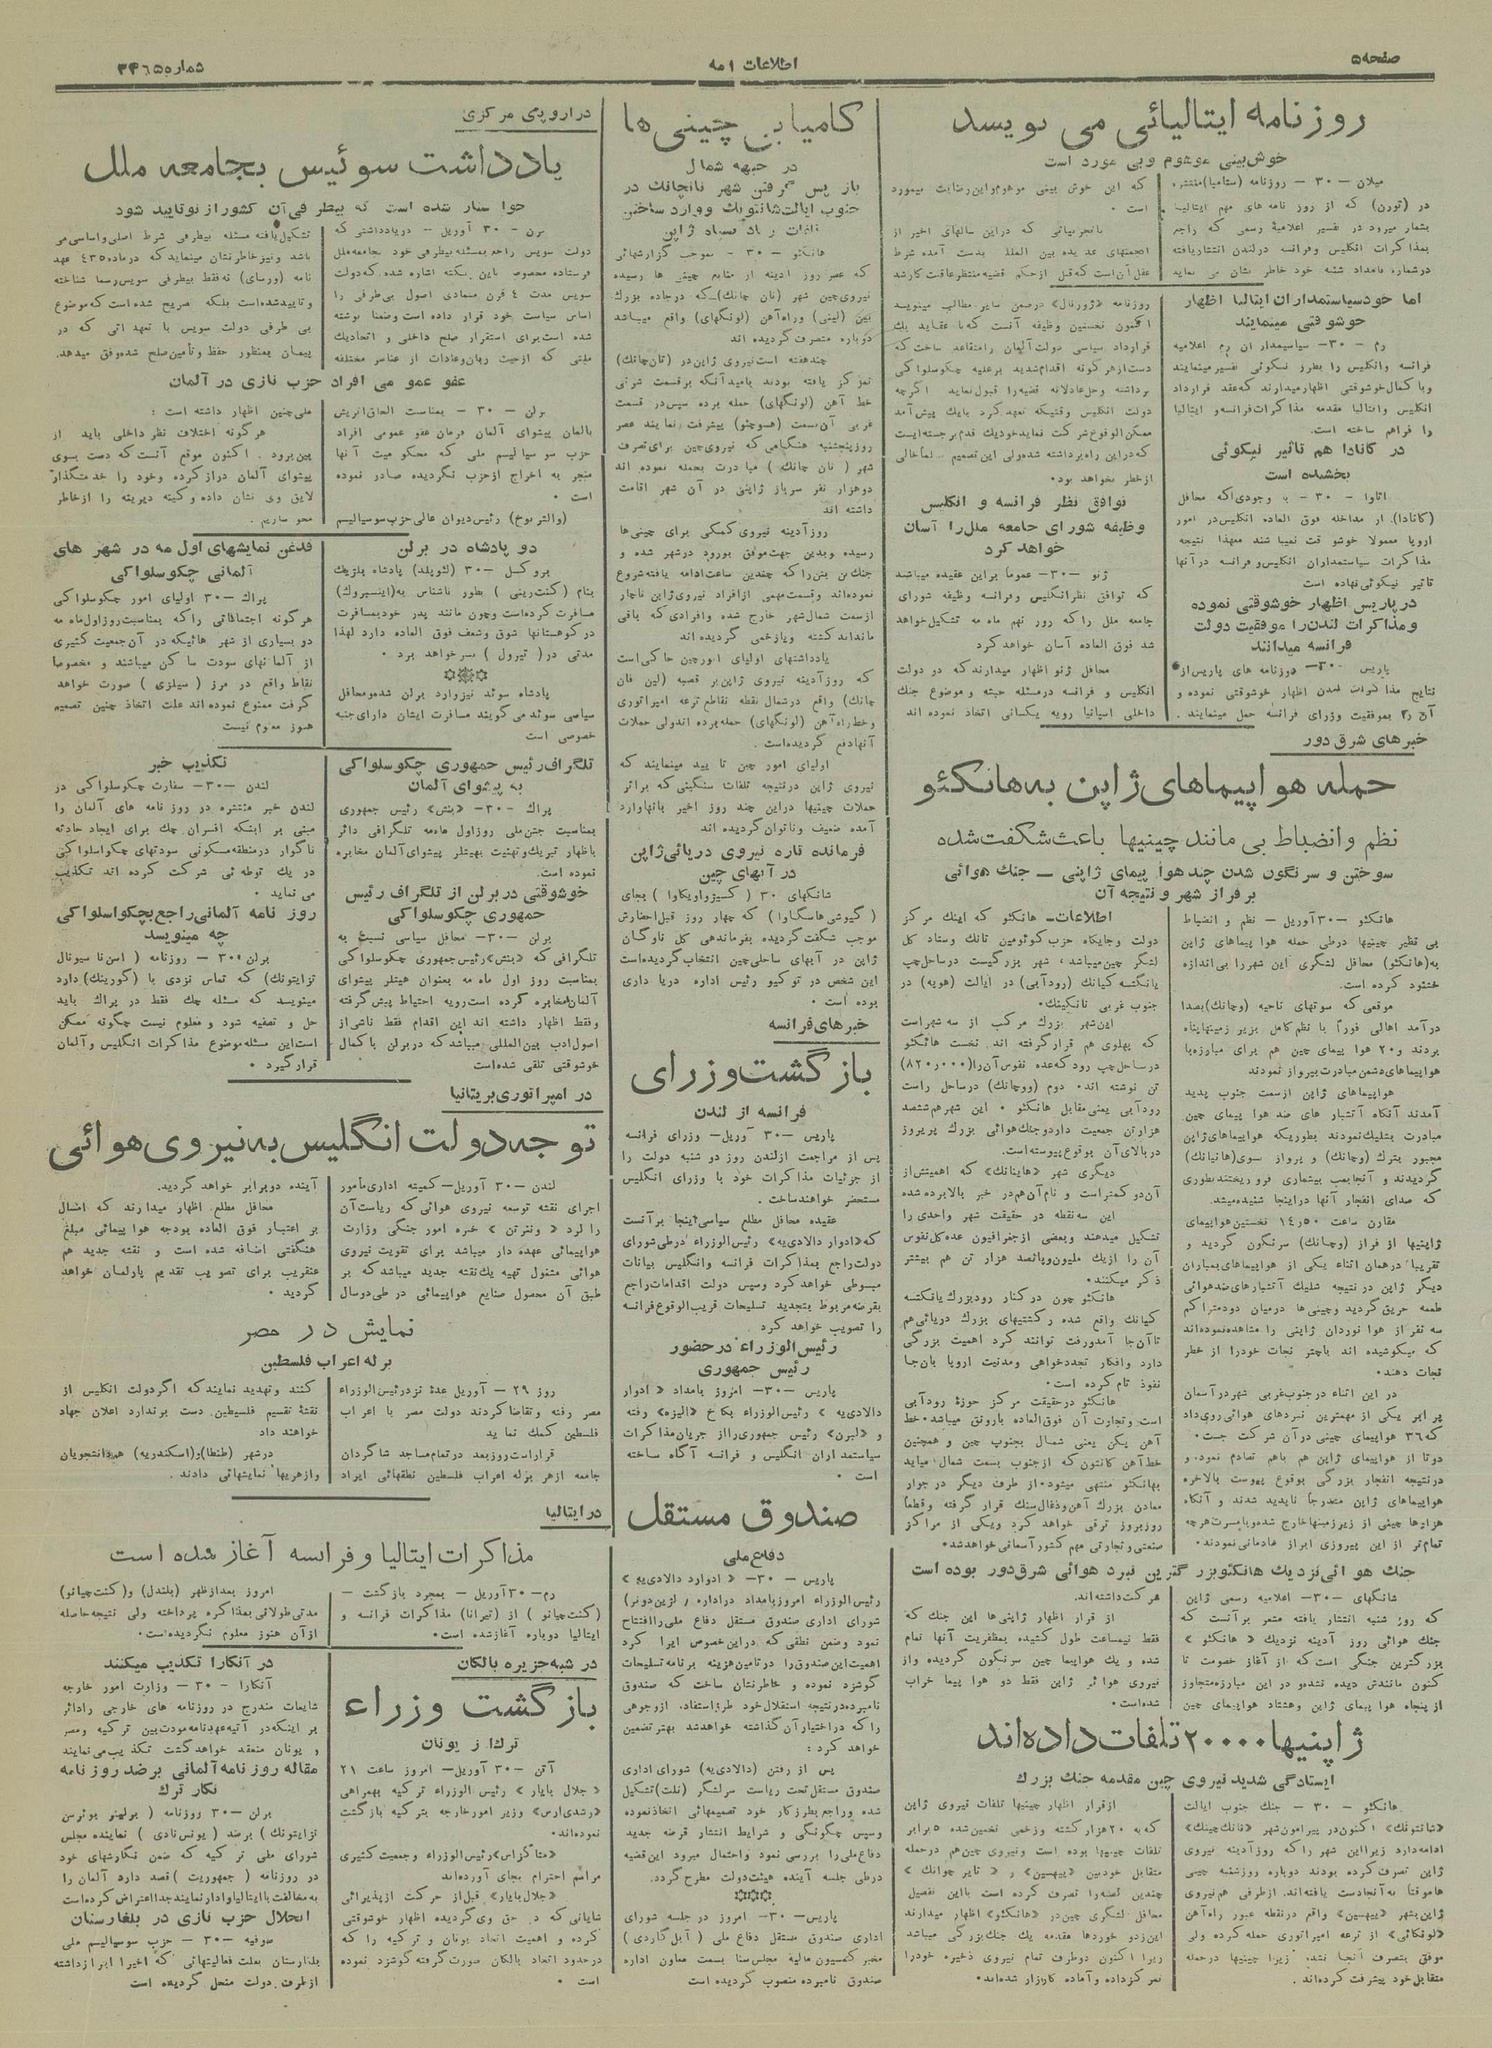 صفحه ۵
اطلاعات ۱ مه
روزنامه ایتالیائی می نویسد
خوش‌بینی موهوم و بی مورد است
میلان - ۳۰ - روزنامه (ستامپا) منتشره
در (تورن) که از روز نامه های مهم ایتالیا
بشمار میرود در تفسیر اعلامیهٔ رسمی که راجع
بمذاکرات انگلیس وفرانسه درلندن انتشاریافته
درشماره بامداد شنبه خود خاطر نشان می نماید
که این خوش بینی موهوم و این رضایت بیمورد
است .
باتجربیاتی که دراین سالهای اخیر از
انجمنهای عدیده بین المللی بدست آمده شرط
عقل آن است که قبل از حکم قضیه منتظر عاقبت کار شد
اما خود سیاستمداران ایتالیا اظهار
خوشوقتی مینمایند
رم - ۳۰- سیاسیمداران رم اعلامیه
فرانسه وانگلیس را بطرز نیکوئی تفسیر مینمایند
و با کمال خوشوقتی اظهار میدارند که عقد قرارداد
انگلیس وایتالیا مقدمه مذاکرات فرانسه و ایتالیا
را فراهم ساخته است.
در کانادا هم تأثیر نیکوئی
بخشیده است
اتاوا - ۳۰ - با وجودی‌که محافل
(کانادا) از مداخله فوق العاده انگلیس در امور
اروپا معمولا خوشوقت نمیباشند معهذا نتیجه
مذاکرات سیاستمداران انگلیس و فرانسه در آنها
تاثیر نیکوئی نهاده است
در پاریس اظهار خوشوقتی نموده
و مذاکرات لندن را موفقیت دولت
فرانسه میدانند
پاریس -۳۰- روزنامه های پاریس از
نتایج مذاکرات لندن اظهار خوشوقتی نموده و
آن را بموفقیت وزرای فرانسه حمل مینمایند .
روزنامه «ژورنال» درضمن سایر مطالب مینویسد
اکنون نخستین وظیفه آنست که با عقاید یک
قرارداد سیاسی دولت آلمان را متقاعد ساخت که
دست از هرگونه اقدام شدید بر علیه چکوسلواکی
برداشته و حل عادلانه قضیه را قبول نماید اگرچه
دولت انگلیس وقتیکه تعهد کرد با یک پیش آمد
ممکن الوقوع شرکت نماید خود یک قدم برجسته ایست
که در این راه برداشته شده ولی این تصمیم خالی
از خطر نخواهد بود.
توافق نظر فرانسه و انگلیس
وظیفه شورای جامعه ملل را آسان
خواهد کرد
ژنو -۳۰- عموماً بر این عقیده میباشند
که توافق نظر انگلیس و فرانسه وظیفه شورای
جامعه ملل را که روز نهم ماه مه تشکیل خواهد
شد فوق العاده آسان خواهد کرد
محافل ژنو اظهار میدارند که دو دولت
انگلیس و فرانسه در مسئله حبشه و موضوع جنگ
داخلی اسپانیا رویه یکسانی اتخاذ نموده اند
خبر های شرق دور
حمله هواپیماهای ژاپن به هانکئو
نظم و انضباط بی مانند چینیها باعث شگفت شده
سوختن و سرنگون شدن چند هوا پیمای ژاپنی – جنک هوائی
بر فراز شهر و نتیجه آن
هانکئو -۳۰ آوریل - نظم و انضباط
بی نظیر چینیها درطی حمله هوا پیماهای ژاپن
به (هانکئو) محافل لشگری این شهر را بی اندازه
خشنود کرده است.
موقعی که سوتهای ناحیه (وچانک) بصدا
درآمد اهالی فوراً با نظم کامل بزیر زمینها پناه
بردند و۲۰ هوا پیمای چین هم برای مبارزه با
هواپیماهای دشمن مبادرت بپرواز نمودند
هواپیماهای ژاپن از سمت جنوب پدید
آمدند آنگاه آتشبار های ضد هوا پیمای چین
مبادرت بشلیک نمودند بطوریکه هواپیماهای ژاپن
مجبور بترک (وچانک) و پرواز سوی (هانیانک)
گردیدند و آنجا بمب بیشماری فرو ریختند بطوری
که صدای انفجار آنها در اینجا شنیده میشد.
مقارن ساعت ۱۴٫۵۰ نخستین هواپیمای
ژاپنیها از فراز (وچانک) سرنگون گردید و
تقریباً در همان اثناء یکی از هواپیماهای بمباران
دیگر ژاپن در نتیجه شلیک آتشبار های ضد هوائی
طعمه حریق گردید و چینی ها درمیان دود متراکم
سه نفر از هوا نوردان ژاپنی را مشاهده نموده اند
که میکوشیده اند باچتر نجات خود را از خطر
نجات دهند.
در این اثناء در جنوب غربی شهر در آسمان
برابر یکی از مهمترین نبردهای هوائی روی داد
که ۳۶ هواپیمای چینی در آن شرکت جست.
دوتا از هواپیمای ژاپن هم باهم تصادم نمود و
در نتیجه انفجار بزرگی بوقوع پیوست بالاخره
هواپیماهای ژاپن متدرجاً ناپدید شدند و آنگاه
هزارها چینی از زیرزمینها خارج شده و با مسرت هر چه
تمام تر از این پیروزی ابراز شادمانی نمودند.
اطلاعات- هانکئو که اینک مرکز
دولت و جایگاه حزب کوئومین تانک و ستاد کل
لشگر چین میباشد، شهر بزرگیست در ساحل چپ
یانکتسه کیانک (رود آبی) در ایالت (هوپه) در
جنوب غربی نانکینک.
این شهر بزرک مرکب از سه شهر است
که پهلوی هم قرار گرفته اند. نخست هانکئو
در ساحل چپ رود که عده نفوس آنرا (۸۲۰٫۰۰۰)
تن نوشته اند. دوم (ووچانک) در ساحل راست
رود آبی یعنی مقابل هانکئو . این شهر هم ششصد
هزار تن جمعیت دارد و جنک هوائی بزرک پریروز
در بالای آن بوقوع پیوسته است.
دیگری شهر «هاینانک» که اهمیتش از
آن دو کمتر است و نام آن هم در خبر بالا برده شده
این سه نقطه در حقیقت شهر واحدی را
تشکیل میدهند و بعضی از جغرافیون عده کل نفوس
آن را از یک ملیون و پانصد هزار تن هم بیشتر
ذکر میکنند.
هانکئو چون در کنار رود بزرک یانکتسه
کیانک واقع شده و کشتیهای بزرک دریائی هم
تا آن جا آمد و رفت توانند کرد اهمیت بزرگی
دارد و افکار تجدد خواهی و مدنیت اروپا بآن جا
نفوذ تام کرده است.
هانکئو در حقیقت مرکز حوزهٔ رود آبی
است و تجارت آن فوق العاده با رونق میباشد. خط
آهن پکن یعنی شمال بجنوب چین و همچنین
خط آهن کانتون که از جنوب بسمت شمال میاید
بهانکئو منتهی میشود. از طرف دیگر در جوار
معادن بزرک آهن و ذغال سنک قرار گرفته و قطعاً
روز بروز ترقی خواهد کرد و یکی از مراکز
صنعتی و تجارتی مهم کشور آسمانی خواهد شد.
جنک هوائی نزدیک هانکئو بزرگترین نبرد هوائی شرق دور بوده است
شانگهای -۳۰- اعلامیه رسمی ژاپن
که روز شنبه انتشار یافته مشعر بر آنست که
جنک هوائی روز آدینه نزدیک «هانکئو»
بزرگترین جنگی است که از آغاز خصومت تا
کنون مانندش دیده نشده و در این مبارزه متجاوز
از پنجاه هوا پیمای ژاپن و هشتاد هواپیمای چین
شرکت داشته اند.
از قرار اظهار ژاپنی ها این جنک که
فقط نیمساعت طول کشیده بمظفریت آنها تمام
شده و یک هواپیما چین سرنگون گردیده و از
نیروی هوائی ژاپن فقط دو هوا پیما خراب
شده است.
ژاپنیها ۲۰۰۰۰ تلفات داده اند
ایستادگی شدید نیروی چین مقدمه جنک بزرک
هانکئو - ۳۰ - جنک جنوب ایالت
«شانتونک» اکنون در پیرامون شهر «تانک چینک»
ادامه دارد زیرا این شهر را که روز آدینه نیروی
ژاپن تصرف کرده بودند دوباره روز شنبه چینی
ها موقتاً به آنجا دست یافته اند. از طرفی هم نیروی
ژاپن بشهر «پیهسین» واقع در نقطه عبور راه آهن
«لونکائی» از ترعه امپراتوری حمله کرده ولی
موفق بتصرف آنجا نشد. زیرا چینیها در حمله
متقابل خود پیشرفت کرده اند.
از قرار اظهار چینیها تلفات نیروی ژاپن
که به ۲۰ هزار کشته و زخمی تخمین شده ۵ برابر
تلفات چینیها بوده است و نیروی چین هم در حمله
متقابل خود بین «پیهسین» و «تایرچوانک»
چندین قصبه را تصرف کرده است با این تفصیل
محافل لشگری چین در «هانکئو» اظهار میدارند
این زد و خوردها مقدمه یک جنک بزرگی میباشد
زیرا اکنون دو طرف تمام نیروی ذخیره خود را
تمرکز داده و آماده کارزار شده اند.
کامیابی چینی ها
در جبهه شمال
باز پس گرفتن شهر نانچانک در
جنوب ایالت شانتونک و وارد ساختن
تلفات زیاد بسپاه ژاپن
هانکئو - ۳۰ - بموجب گزارشهائی
که عصر روز آدینه از منابع چینی ها رسیده
نیروی چین شهر (نان چانک) که در جاده بزرک
بین (لینی) و راه آهن (لونگهای) واقع میباشد
دوباره متصرف گردیده اند
چند هفته است نیروی ژاپن در (نان چانک)
تمرکز یافته بودند بامید آنکه بر قسمت شرقی
خط آهن (لونگهای) حمله برده سپس در قسمت
غربی آن بسمت (هسوچئو) پیشرفت نمایند عصر
روز پنجشنبه هنگامی که نیروی چین برای تصرف
شهر ( نان چانک ) مبادرت بحمله نموده اند
دو هزار نفر سرباز ژاپنی در آن شهر اقامت
داشته اند
روز آدینه نیروی کمکی برای چینی ها
رسیده و بدین جهت موفق بورود در شهر شده و
جنک تن بتن را که چندین ساعت ادامه یافته شروع
نموده اند و قسمت مهمی از افراد نیروی ژاپن ناچار
از سمت شمال شهر خارج شده و افرادی که باقی
مانده اند کشته و یا زخمی گردیده اند
یادداشتهای اولیای امور چین حاکی است
که روز آدینه نیروی ژاپن بر قصبه (لین فان
چانک) واقع در شمال نقطه تقاطع ترعه امپراتوری
و خط راه آهن (لونگهای) حمله برده اند ولی حملات
آنها دفع گردیده است.
اولیای امور چین تأیید مینمایند که
نیروی ژاپن در نتیجه تلفات سنگینی که بر اثر
حملات چینیها در این چند روز اخیر بآنها وارد
آمده ضعیف و ناتوان گردیده اند
فرمانده تازه نیروی دریائی ژاپن
در آبهای چین
شانگهای ۳۰ ( کسیزو اویکاوا ) بجای
( گیوشی هاسگاوا ) که چهار روز قبل احضارش
موجب شگفت گردیده بفرماندهی کل ناوگان
ژاپن در آبهای ساحلی چین انتخاب گردیده است
این شخص در توکیو رئیس اداره دریا داری
بوده است .
خبر های فرانسه
بازگشت وزرای
فرانسه از لندن
پاریس -۳۰ آوریل- وزرای فرانسه
پس از مراجعت از لندن روز دو شنبه دولت را
از جزئیات مذاکرات خود با وزرای انگلیس
مستحضر خواهند ساخت.
عقیده محافل مطلع سیاسی اینجا بر آنست
که «ادوار دالادی‌یه» رئیس الوزراء در طی شورای
دولت راجع بمذاکرات فرانسه و انگلیس بیانات
مبسوطی خواهد کرد و سپس دولت اقدامات راجع
بقرضه مربوط بتجدید تسلیحات قریب الوقوع فرانسه
را تصویب خواهد کرد
رئیس الوزراء در حضور
رئیس جمهوری
پاریس -۳۰- امروز بامداد « ادوار
دالادی‌یه » رئیس الوزراء بکاخ «الیزه» رفته
و «لبرن» رئیس جمهوری را از جریان مذاکرات
سیاستمداران انگلیس و فرانسه آگاه ساخته
است .
صندوق مستقل
دفاع ملی
پاریس -۳۰- « ادوارد دالادی‌یه »
رئیس الوزراء امروز بامداد در اداره
شورای اداری صندوق مستقل دفاع ملی را افتتاح
نمود و ضمن نطقی که در این خصوص ایراد کرد
اهمیت این صندوق را در تامین هزینه برنامه تسلیحات
گوشزد نموده و خاطر نشان ساخت که صندوق
نامبرده در نتیجه استقلال خود طرز استفاده از وجوهی
را که در اختیار آن گذاشته خواهد شد بهتر تضمین
خواهد کرد :
پس از رفتن (دالادی‌یه) شورای اداری
صندوق مستقل تحت ریاست سرلشگر تشکیل
شده و راجع بطرز کار خود تصمیمهائی اتخاذ نموده
و سپس چگونگی و شرایط انتشار قرضه جدید
دفاع ملی را بررسی نمود و احتمال میرود این قضیه
در طی جلسه آینده هیئت دولت مطرح گردد.
***
پاریس -۳۰- امروز در جلسه شورای
اداری صندوق مستقل دفاع ملی ( آبل گاردی )
مخبر کمسیون مالیه مجلس سنا بسمت معاون اداره
صندوق نامبرده منصوب گردیده است
در اروپای مرکزی
یادداشت سوئیس بجامعه ملل
خواستار شده است که بیطرفی آن کشور از نو تایید شود
برن - ۳۰ آوریل - در یادداشتی که
دولت سویس راجع بمسئله بیطرفی خود بجامعه ملل
فرستاده مخصوصاً باین نکته اشاره شده که دولت
سویس مدت ٤ قرن متمادی اصول بی طرفی را
اساس سیاست خود قرار داده است و ضمناً نوشته
شده است برای استقرار صلح داخلی و اتحاد یک
ملتی که از حیث زبان و عادات از عناصر مختلفه
تشکیل یافته مسئله بیطرفی شرط اصلی و اساسی می
باشد و نیز خاطر نشان مینماید که در ماده ٤۳٥ عهد
نامه (ورسای) نه فقط بیطرفی سویس رسماً شناخته
و تایید شده است بلکه تصریح شده است که موضوع
بی طرفی دولت سویس با تعهداتی که در
پیمان بمنظور حفظ و تأمین صلح شده وفق میدهد.
عفو عمومی افراد حزب نازی در آلمان
برلن - ۳۰ - بمناسبت الحاق اتریش
بآلمان پیشوای آلمان فرمان عفو عمومی افراد
حزب سوسیالیسم ملی که محکومیت آنها
منجر به اخراج از حزب نگردیده صادر نموده
است .
(والتر بوخ) رئیس دیوان عالی حزب سوسیالیسم
ملی چنین اظهار داشته است :
هر گونه اختلاف نظر داخلی باید از
بین برود . اکنون موقع آنست که دست بسوی
پیشوای آلمان دراز کرده و خود را خدمتگذار
لایق وی نشان داده و کینه دیرینه را از خاطر
محو سازیم .
دو پادشاه در برلن
بروکسل -۳۰ (لئوپلد) پادشاه بلژیک
بنام (کنت رینی) بطور ناشناس به (اینسبروک)
مسافرت کرده است و چون مانند پدر خود بمسافرت
در کوهستانها شوق و شعف فوق العاده دارد لهذا
مدتی در ( تیرول ) بسر خواهد برد .
***
پادشاه سوئد نیز وارد برلن شده و محافل
سیاسی سوئد می گویند مسافرت ایشان دارای جنبه
خصوصی است
قدغن نمایشهای اول مه در شهر های
آلمانی چکوسلواکی
پراک -۳۰ اولیای امور چکوسلواکی
هر گونه اجتماعاتی را که بمناسبت روز اول ماه مه
در بسیاری از شهر هائیکه در آن جمعیت کثیری
از آلمانهای سودت ساکن میباشند و مخصوصاً
نقاط واقع در مرز ( سیلزی ) صورت خواهد
گرفت ممنوع نموده اند علت اتخاذ چنین تصمیم
هنوز معلوم نیست
تلگراف رئیس جمهوری چکوسلواکی
به پیشوای آلمان
پراک -۳۰- «بنش» رئیس جمهوری
بمناسبت جشن ملی روز اول ماه مه تلگرافی دائر
باظهار تبریک و تهنیت بهیتلر پیشوای آلمان مخابره
نموده است.
خوشوقتی در برلن از تلگراف رئیس
جمهوری چکوسلواکی
برلن -۳۰- محافل سیاسی نسبت به
تلگرافی که «بنش» رئیس جمهوری چکوسلواکی
بمناسبت روز اول ماه مه بعنوان هیتلر پیشوای
آلمان مخابره کرده است رویه احتیاط پیش گرفته
و فقط اظهار داشته اند این اقدام فقط ناشی از
اصول ادب بین المللی میباشد که در برلن با کمال
خوشوقتی تلقی شده است
تکذیب خبر
لندن -۳۰- سفارت چکوسلواکی در
لندن خبر منتشره در روز نامه های آلمان را
مبنی بر اینکه افسران چک برای ایجاد حادثه
ناگوار در منطقه مسکونی سودتهای چکوسلواکی
در یک توطئه شرکت کرده اند تکذیب
می نماید .
روز نامه آلمانی راجع بچکواسلواکی
چه مینویسد
برلن -۳۰ - روزنامه ( اسن ناسیونال
تزایتونک) که تماس نزدی با (گورینک) دارد
مینویسد که مسئله چک فقط در پراک باید
حل و تصفیه شود و معلوم نیست چگونه ممکن
است این مسئله موضوع مذاکرات انگلیس و آلمان
قرار گیرد .
در امپراتوری بریتانیا
توجه دولت انگلیس به نیروی هوائی
لندن -۳۰ آوریل- کمیته اداری مأمور
اجرای نقشه توسعه نیروی هوائی که ریاست آن
را لرد « ونترتن » خبره امور جنگی وزارت
هواپیمائی عهده دار میباشد برای تقویت نیروی
هوائی مشغول تهیه یک نقشه جدید میباشد که بر
طبق آن محصول صنایع هواپیمائی در طی دو سال
آینده دو برابر خواهد گردید.
محافل مطلع اظهار میدارند که امسال
بر اعتبار فوق العاده بودجه هوا پیمائی مبلغ
هنگفتی اضافه شده است و نقشه جدید هم
عنقریب برای تصویب تقدیم پارلمان خواهد
گردید .
نمایش در مصر
بر له اعراب فلسطین
روز ۲۹ - آوریل عدهٔ نزد رئیس الوزراء
مصر رفته و تقاضا کردند دولت مصر با اعراب
فلسطین کمک نماید
قرار است روز بعد در تمام مساجد شاگردان
جامعه ازهر بر له اعراب فلسطین نطقهائی ایراد
کنند و تهدید نمایند که اگر دولت انگلیس از
نقشهٔ تقسیم فلسطین دست بر ندارد اعلان جهاد
خواهند داد
در شهر (طنطا) و (اسکندریه) هم دانشجویان
و ازهریها نمایشهائی دادند.
در ایتالیا
مذاکرات ایتالیا و فرانسه آغاز شده است
رم -۳۰ آوریل - بمجرد بازگشت -
(کنت چیانو) از (تیرانا) مذاکرات فرانسه و
ایتالیا دوباره آغاز شده است.
امروز بعد از ظهر (بلندل) و (کنت چیانو)
مدتی طولانی بمذاکره پرداخته ولی نتیجه حاصله
از آن هنوز معلوم نگردیده است.
در شبه جزیره بالکان
بازگشت وزراء
ترک از یونان
آتن -۳۰ آوریل- امروز ساعت ۲۱
« جلال بایار » رئیس الوزراء ترکیه بهمراهی
«رشدی ارس» وزیر امور خارجه بترکیه بازگشت
نموده اند.
«متاگزاس» رئیس الوزراء و جمعیت کثیری
مراسم احترام بجای آورده اند
«جلال بایار» قبل از حرکت از پذیرائی
شایانی که در حق وی گردیده اظهار خوشوقتی
کرده و اهمیت اتحاد یونان و ترکیه را که
در حدود اتحاد بالکان صورت گرفته گوشزد نموده
است .
در آنکارا تکذیب میکنند
آنکارا - ۳۰ - وزارت امور خارجه
شایعات مندرج در روزنامه های خارجی را دائر
بر اینکه در آتیه عهدنامه مودت بین ترکیه و مصر
و یونان منعقد خواهد گشت تکذیب می نمایند
مقاله روزنامه آلمانی بر ضد روزنامه
نگار ترک
برلن -۳۰ روزنامه ( برلینر بوئرسن
تزایتونک ) بر ضد ( یونس نادی ) نماینده مجلس
شورای ملی ترکیه که ضمن نگارشهای خود
در روزنامه ( جمهوریت ) قصد دارد آلمان را
به مخالفت با ایتالیا وادار نماید جداً اعتراض کرده است
انحلال حزب نازی در بلغارستان
صوفیه - ۳۰ - حزب سوسیالیسم ملی
بلغارستان بعلت فعالیتهائی که اخیراً ابراز داشته
از طرف دولت منحل گردیده است